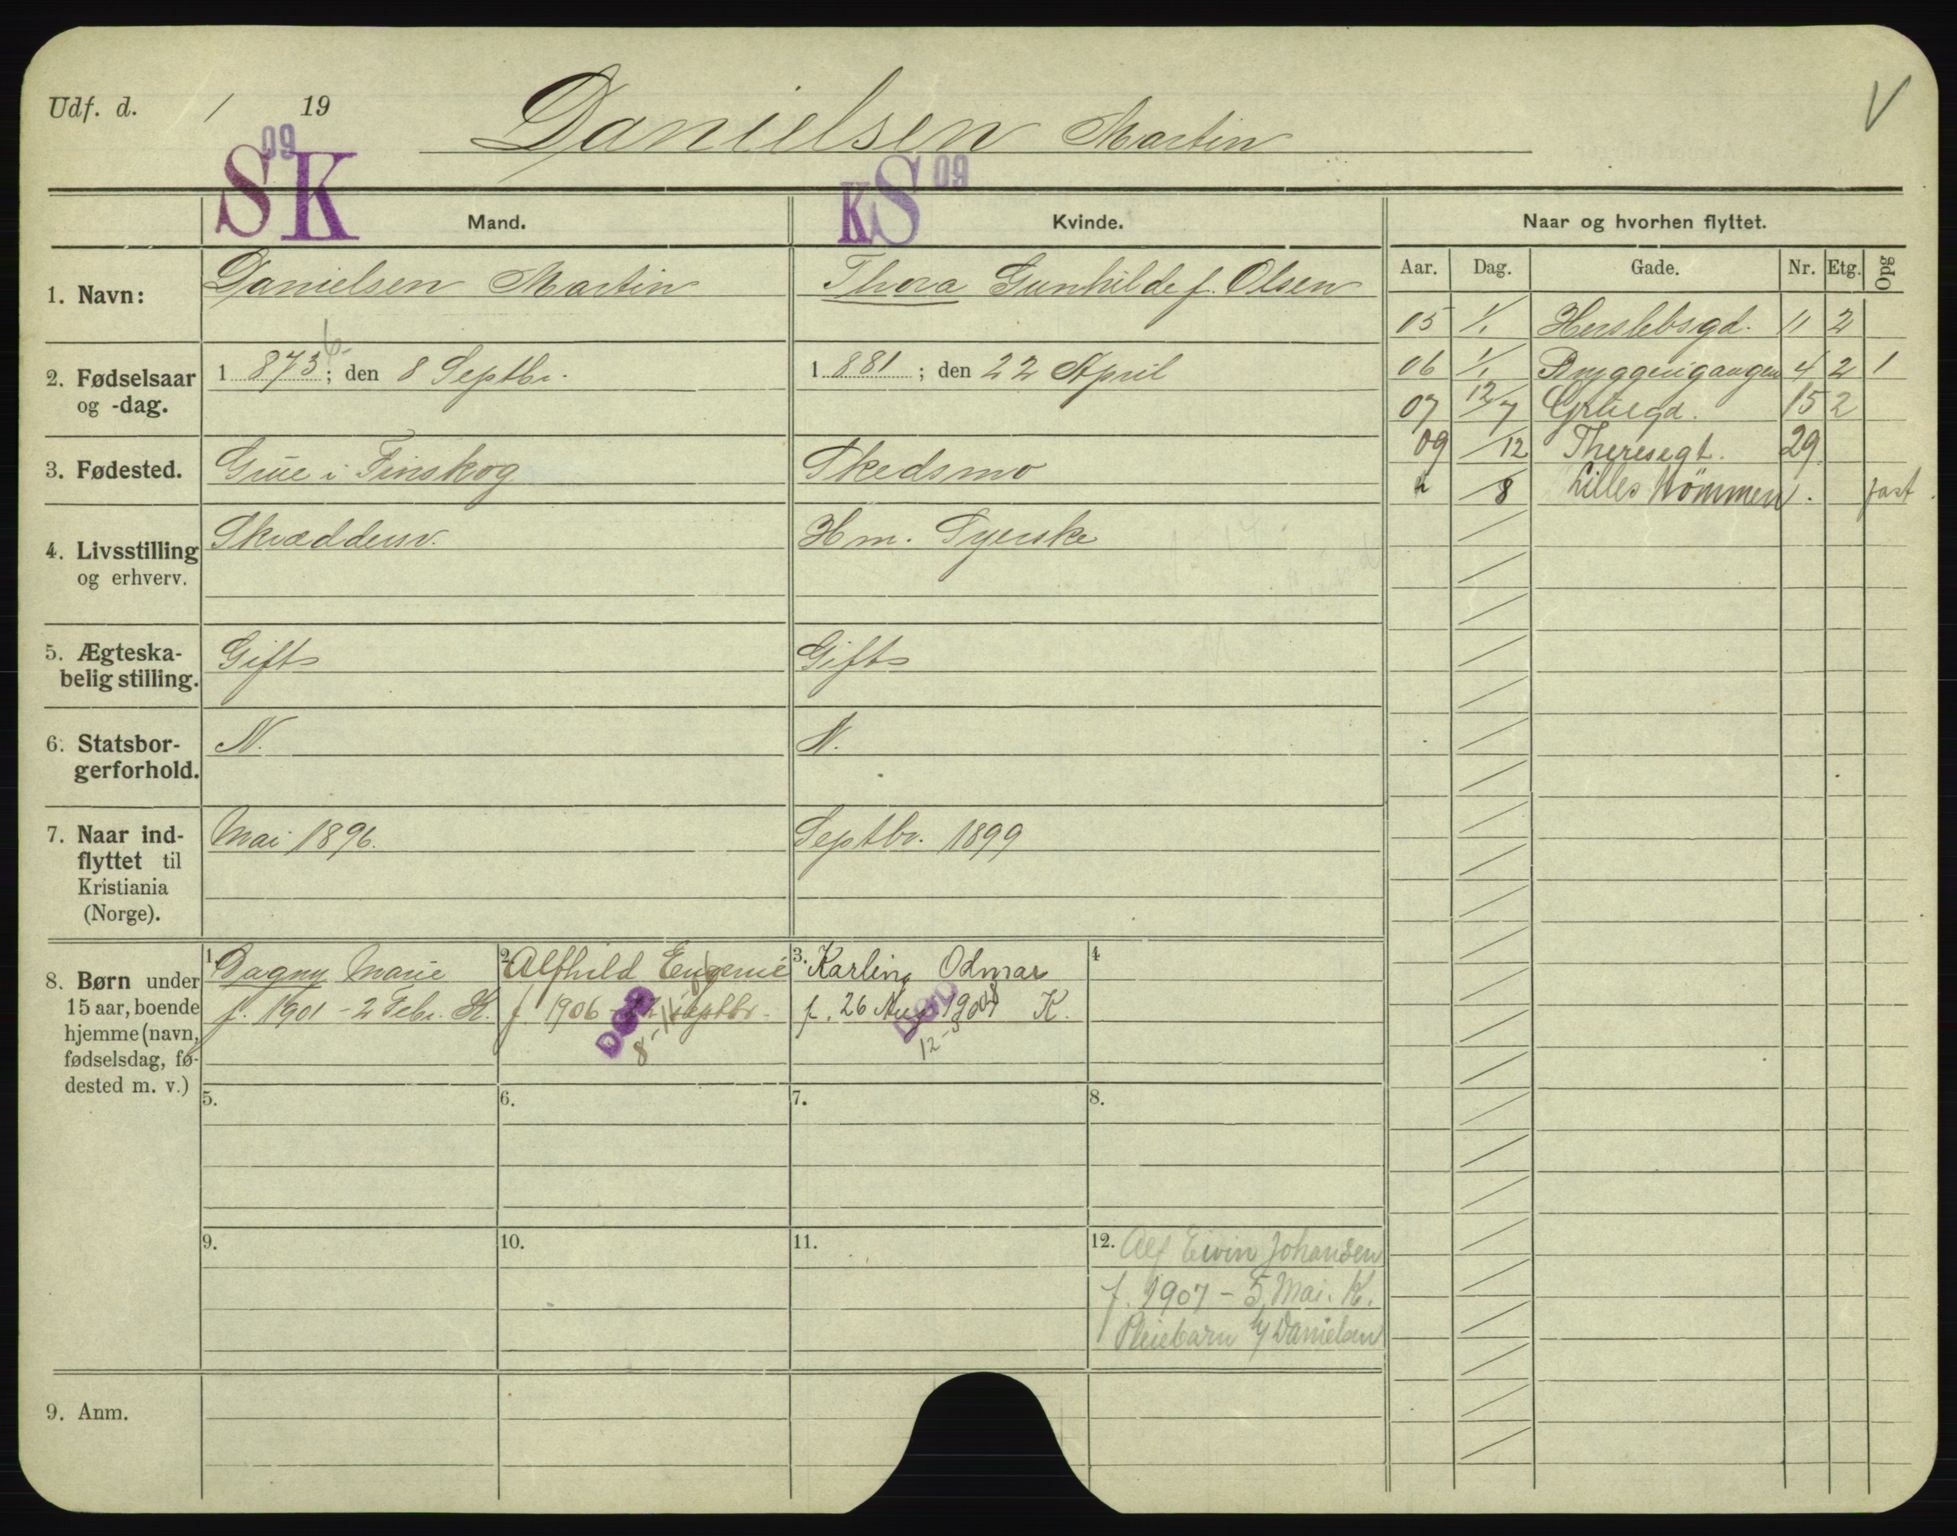 Udf. d. / 19
Danielsen Martin
V
S 09 K
KS 09
Mand.
Kvinde.
Naar og hvorhen flyttet.
Aar. Dag. Gade. Nr. Etg. Opg
1. Navn: Danielsen Martin
Thora Gunhilde f. Olsen
05 1/1 Herslebsgd. 11 2
2. Fødselsaar og -dag. 1 873 ; den 8 Septbr.
6
1 881 ; den 22 April
06 1/1 Bryggerigangen 4 2 1
07 12/7 Grüegd. 15 2
3. Fødested. Grue i Finskog
Skedsmo
09 /12 Theresegt. 29
" /8 Lilles fast.
4. Livsstilling og erhverv. Skræddersv.
Hm. Syerske
5. Ægteskabelig stilling. Gift
Gift
6. Statsborgerforhold. N.
N.
7. Naar indflyttet til Kristiania (Norge). Mai 1896.
Septbr. 1899
8. Børn under
15 aar, boende
hjemme (navn,
fødselsdag, fødested m. v.)
1. Dagny Marie
f. 1901 - 2 Febr. K.
2. Alfhild Eugenie
f 1906 - 22 Septbr.
DØD
8-11
3. Karling Odmar
f. 26 Aug 1908 K.
DØD
12-
4
5.
6.
7.
8.
9.
10.
11.
12. Alf Eivin Johansen
f. 1907 - 5 Mai. K.
Pleiebarn t/ Danielsen
9. Anm.